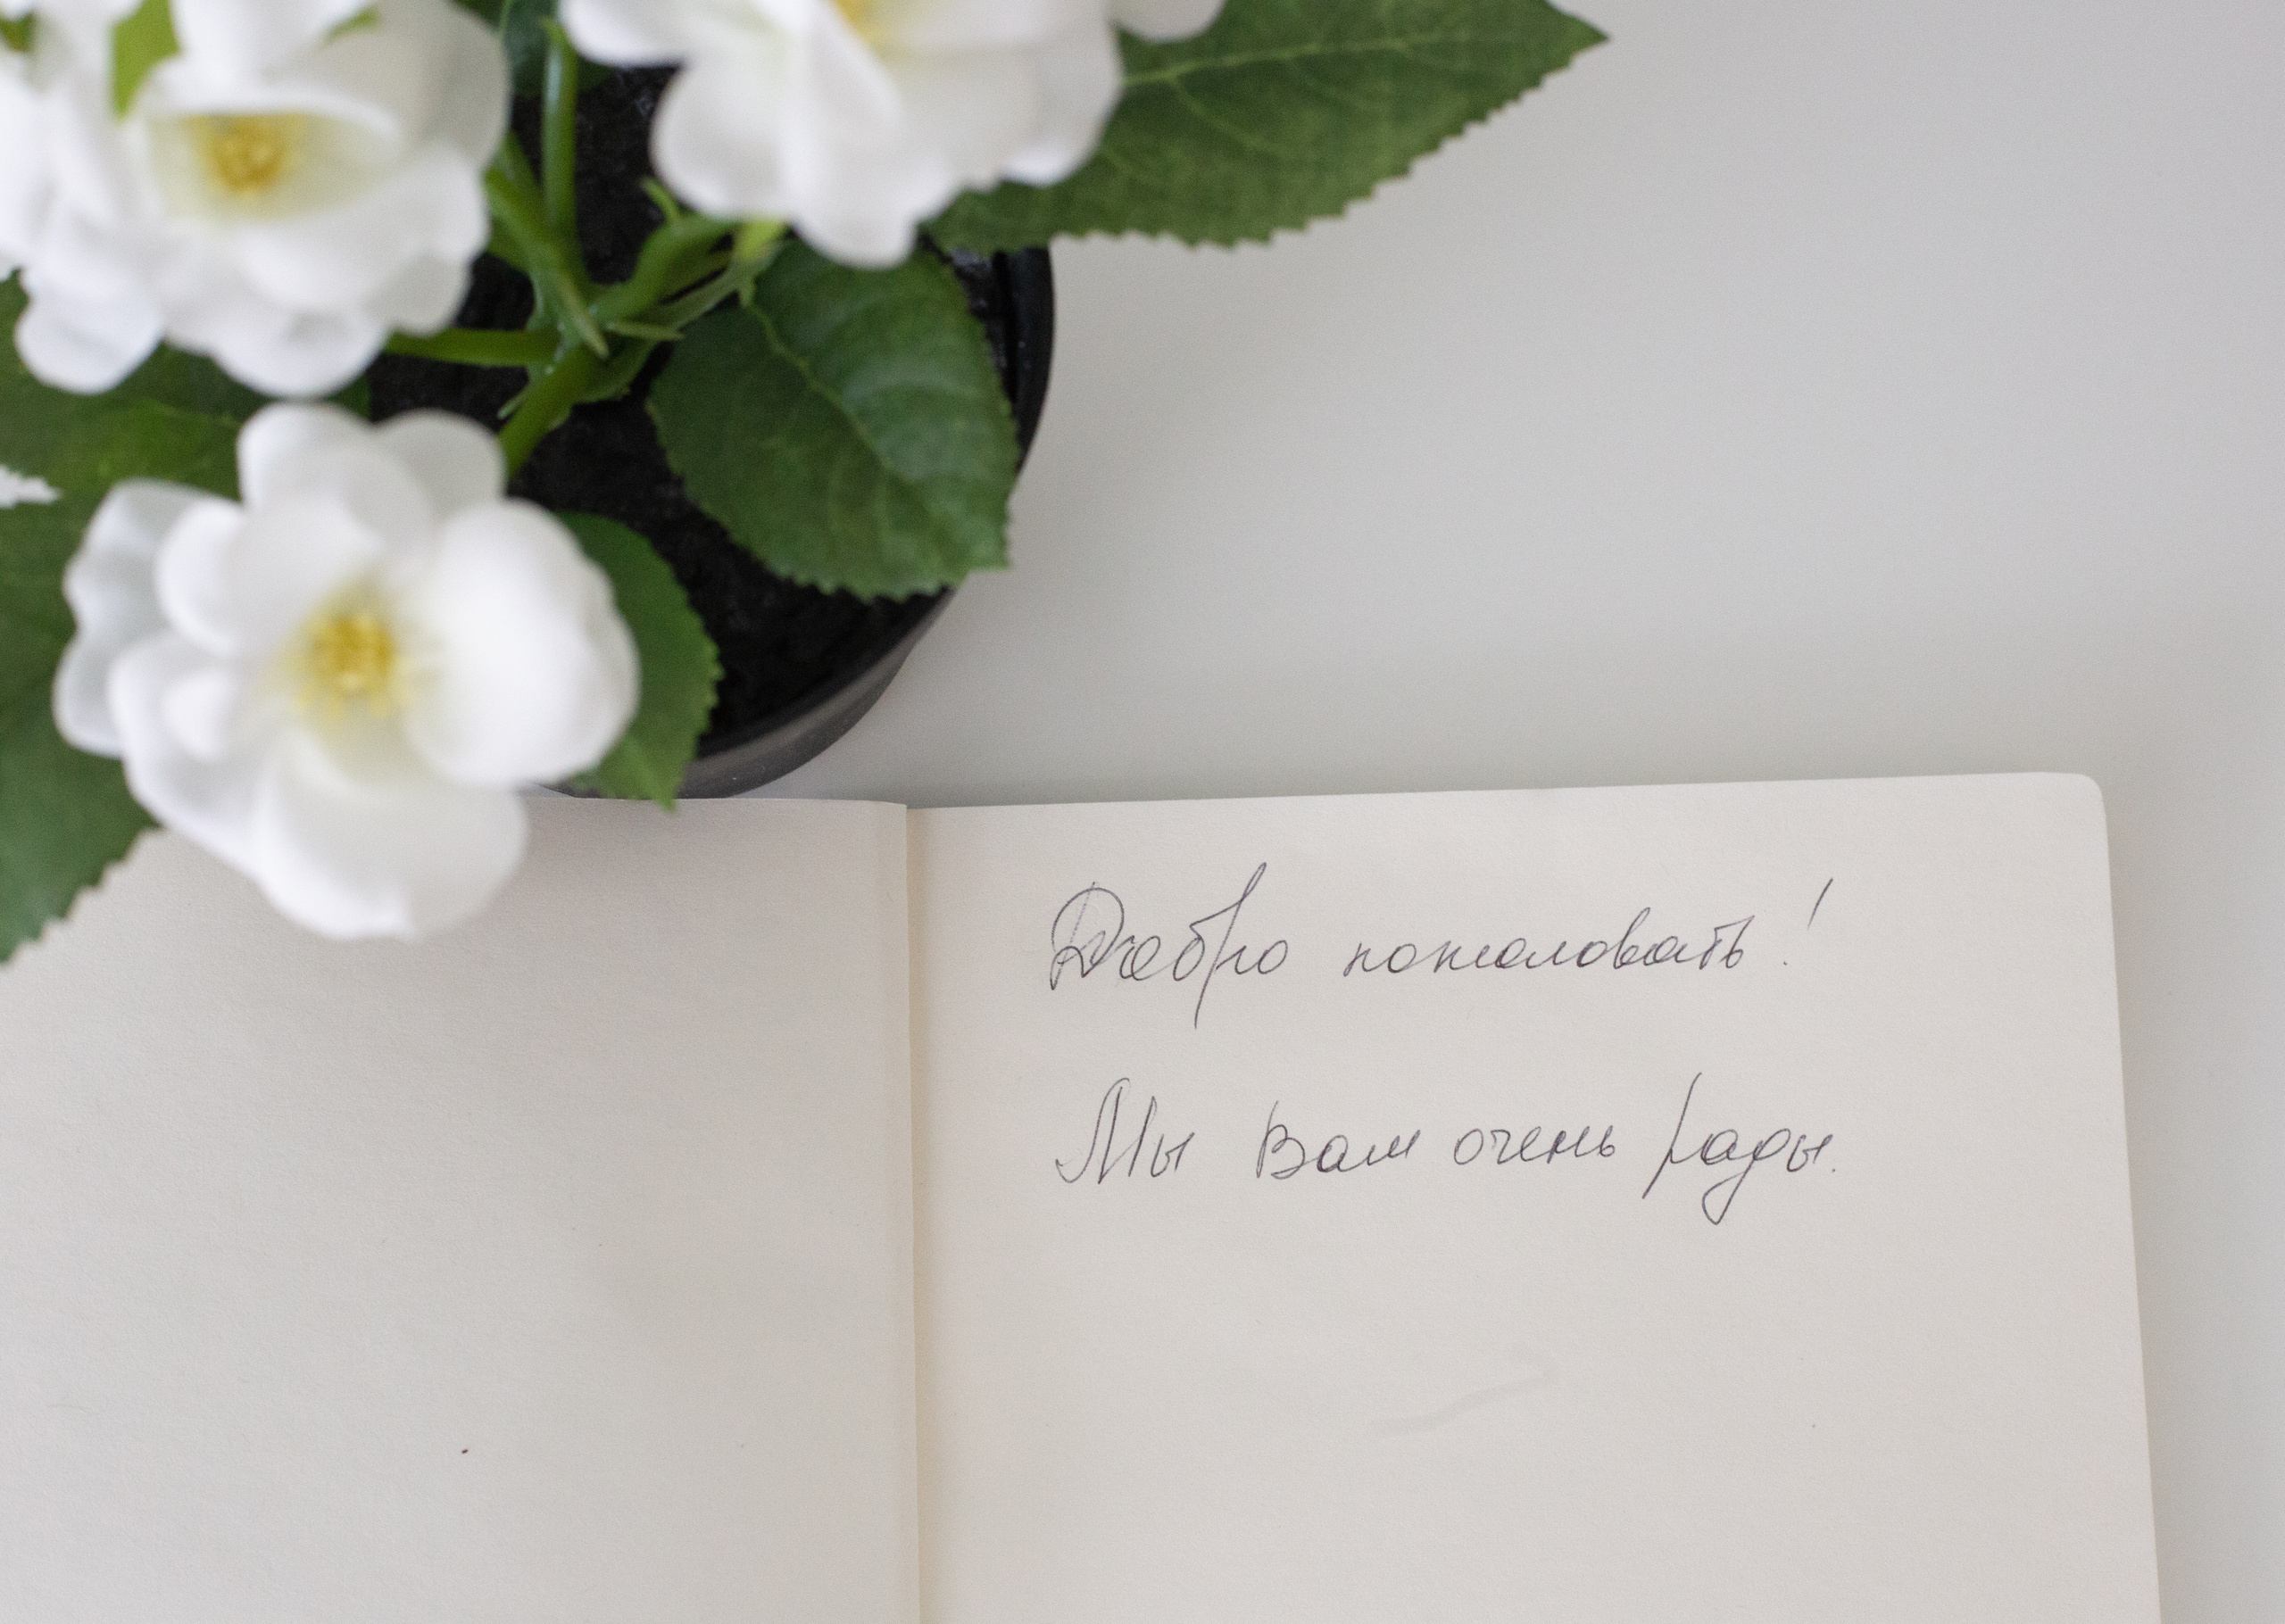 Добро пожаловать!
Мы Вам очень рады.